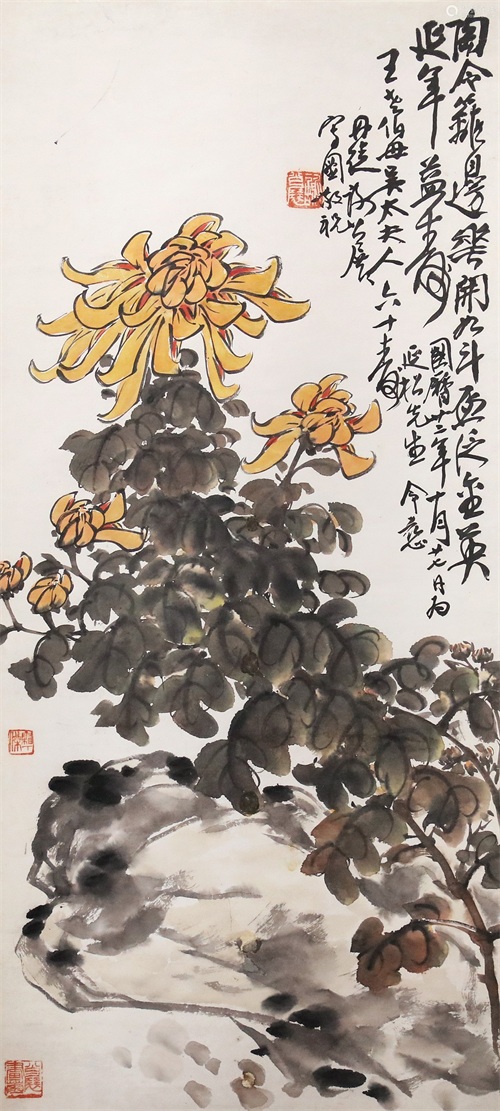 陶令籬邊華開 斗 泛金英
延年益壽
國曆廿三年十月廿七日為
延松先生令慈
王老伯母吳太夫人六十壽
丹徒謝公展
寫圖敬祝